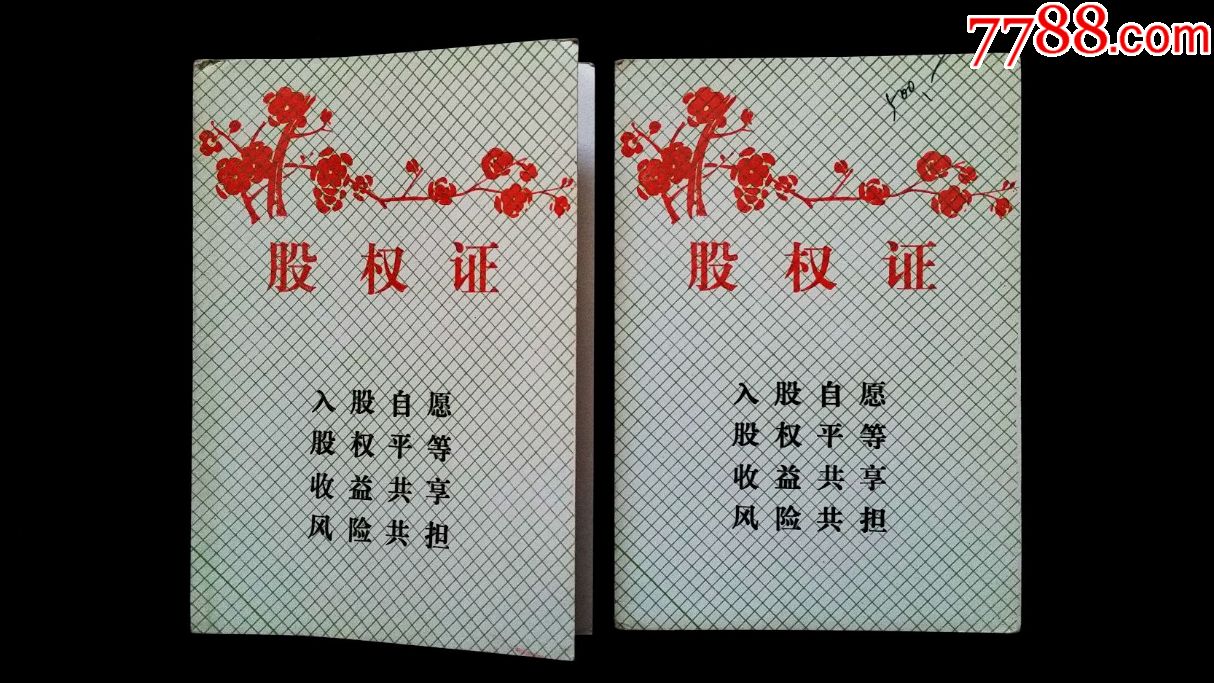 7788.com
股权证
入股自愿
股权平等
收益共享
风险共担
500
股权证
入股自愿
股权平等
收益共享
风险共担